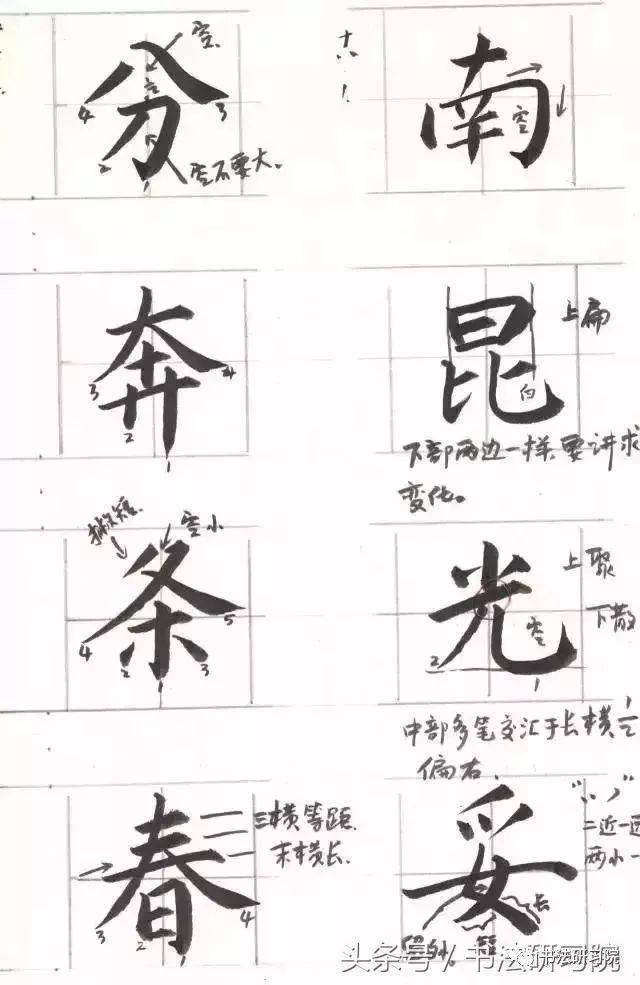 空
分
4
3
2
1
空不要大。
南
空
奔
3
4
2
1
昆
上扁
白
下部两边一样,要讲求
变化。
撇短
空小
条
4
5
2
3
1
光
上聚
下散
空
2
1
中部多笔交汇于长横1/2
偏右.
春
三横等距.
末横长.
3
4
2
1
妥
二近一远
两小一
长
短
头条号 / 书法研习院